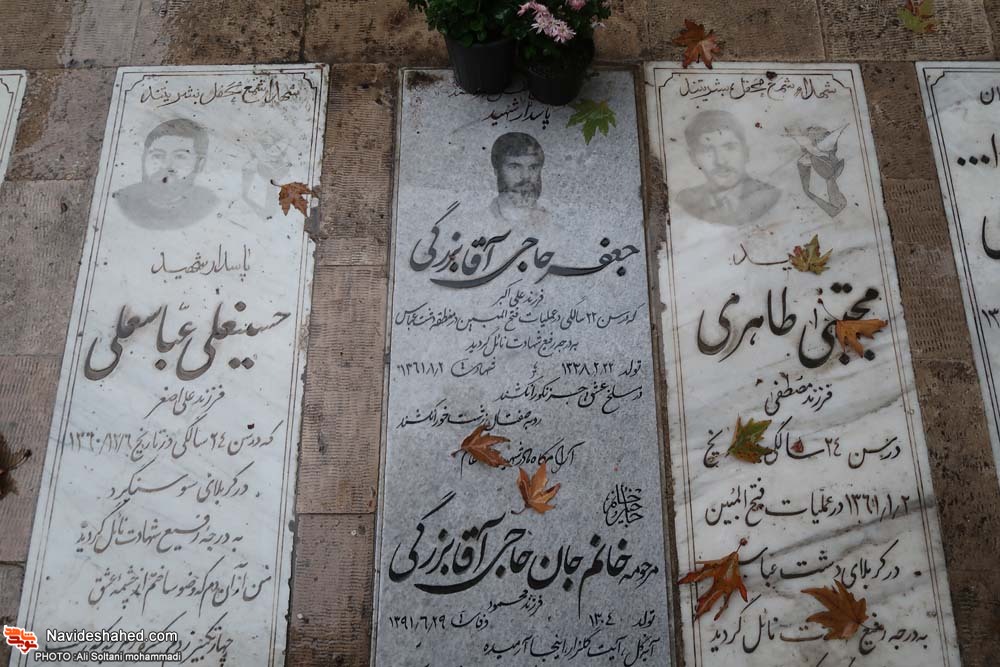 شهدا شمع محفل بشریتند
پاسدار شهید
حسینعلی عباسعلی
فرزند علی اصغر
که در سن ۲۴ سالگی در تاریخ ۱۳۶۰/۱۲/۶
در کربلای سوسنگرد
به درجه رفیع شهادت نائل گردید
من از آن دم که وضو ساختم از چشمه عشق
چهار تکبیر زدم
پاسدار شهید
جعفر حاجی آقا بزرگی
فرزند علی اکبر
که در سن ۲۲ سالگی در عملیات فتح المبین در منطقه دشت عباس
به درجه رفیع شهادت نائل گردید
تولد ۱۳۳۸.۲.۲۲ شهادت ۱۳۶۱/۱/۲
در مسلخ عشق جز نکو را نکشند
روبه صفتان زشت خو را نکشند
آرامگاه مادر شهید
مرحومه خانم جان حاجی آقا بزرگی
فرزند محمود
تولد ۱۳۰۴ وفات ۱۳۹۱/۶/۱۹
شهدا شمع محفل بشریتند
مجتبی طاهری
فرزند مصطفی
در سن ۲۴ سالگی
۱۳۶۱/۱/۲ در عملیات فتح المبین
در کربلای دشت عباس
به درجه رفیع نائل گردید
Navideshahed.com
PHOTO :Ali Soltani mohammadi